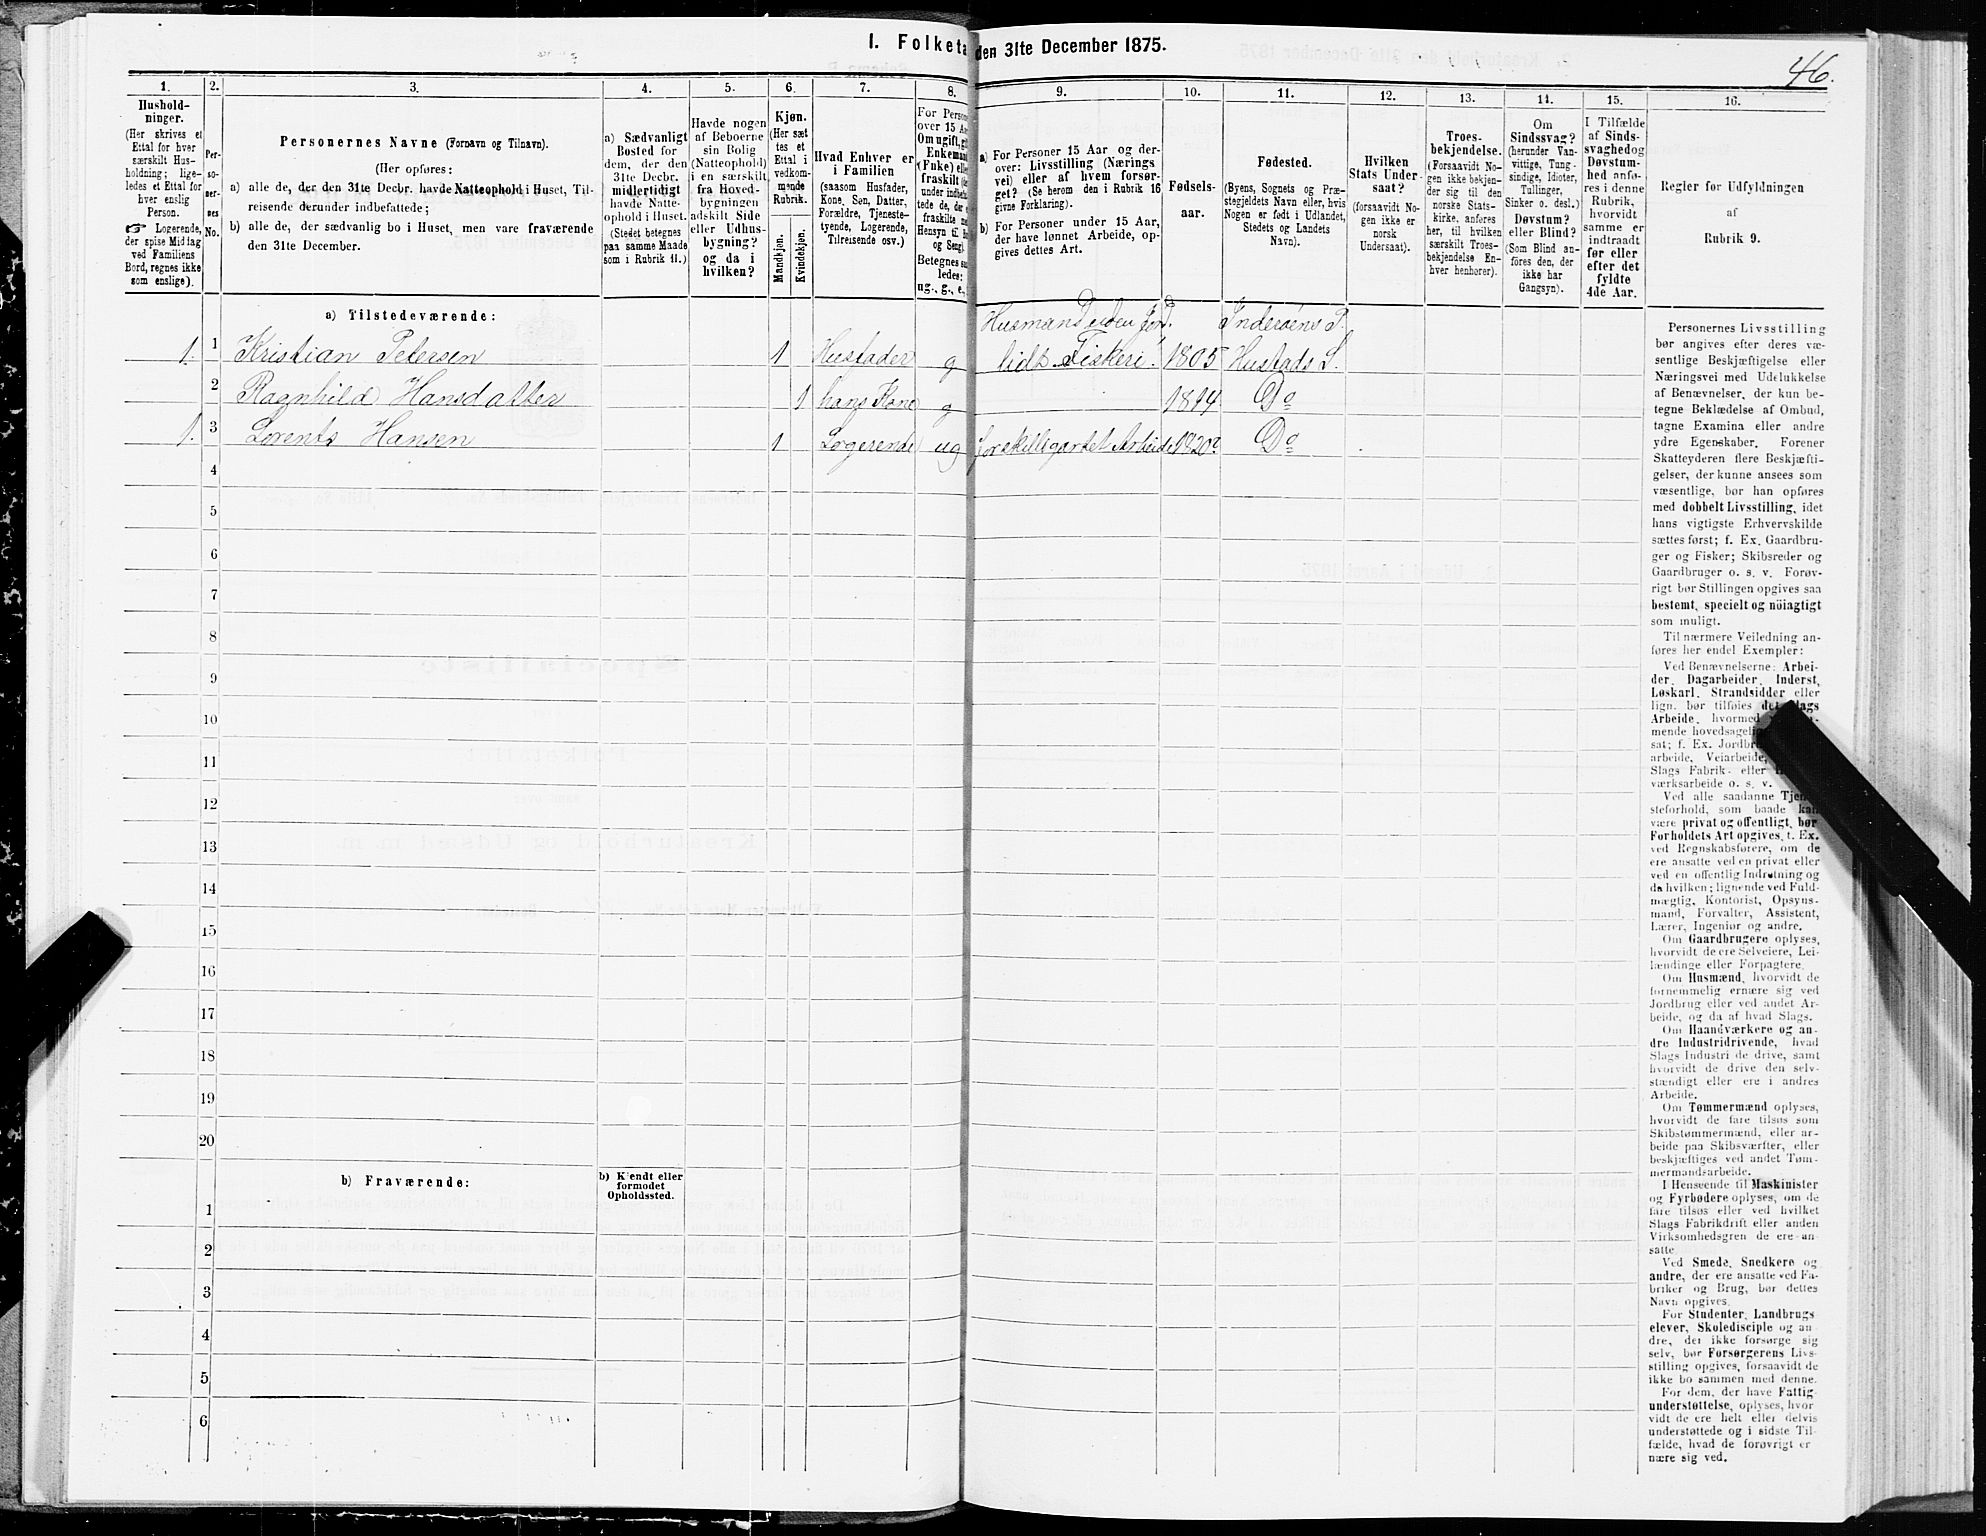 I. Folketa
den 31te December 1875.
46.
1.
2.
3.
4.
5.
6.
7.
8.
9.
10.
11.
12.
13.
14.
15.
16.
Hushold-
ninger.
(Her skrives et
Ettal for hver
særskilt Hus-
holdning; lige-
ledes et Ettal for
hver enslig
Person.
☞ Logerende,
der spise Middag
ved Familiens
Bord, regnes ikke
som enslige).
Per-
so-
ner-
nes
No.
Personernes Navne (Fornavn og Tilnavn).
(Her opføres:
a) alle de, der den 31te Decbr. havde Natteophold i Huset, Til-
reisende derunder indbefattede;
b) alle de, der sædvanlig bo i Huset, men vare fraværende
den 31te December.
a) Sædvanligt
Bosted for
dem, der den
31te Decbr.
midlertidigt
havde Natte-
ophold i Huset.
(Stedet betegnes
paa samme Maade
som i Rubrik 11.)
Havde nogen
af Beboerne
sin Bolig
(Natteophold)
i en særskilt
fra Hoved-
bygningen
adskilt Side
eller Udhus-
bygning?
og da i
hvilken?
Kjøn.
(Her sæt
tes et
Ettal i
vedkom-
mende
Rubrik.
Mandkjøn.
Kvindekjøn.
Hvad Enhver er
i Familien
(saasom Husfader,
Kone, Søn, Datter,
Forældre, Tjeneste-
tyende, Logerende,
Tilreisende osv.)
For Person
over 15 Aa
Om ugift, gif
Enkemand
(Enke) elle
fraskilt
under indbefat
tede de, der
fraskilte
Hensyn til
og Seng).
Betegnes saa
ledes:
ug., g., e.,
a) For Personer 15 Aar og der-
over: Livsstilling (Nærings
vei) eller af hvem forsør-
get? (Se herom den i Rubrik 16
givne Forklaring).
b) For Personer under 15 Aar,
der have lønnet Arbeide, op-
gives dettes Art.
Fødsels-
aar.
Fødested.
(Byens, Sognets og Præ-
stegjeldets Navn eller, hvis
Nogen er født i Udlandet,
Stedets og Landets
Navn).
Hvilken
Stats Under-
saat?
(forsaavidt No-
gen ikke er
norsk
Undersaat).
Troes-
bekjendelse.
(Forsaavidt No-
gen ikke bekjen-
der sig til den
norske Stats-
kirke, anføres
her, til hvilken
særskilt Troes-
bekjendelse En-
hver henhører).
Om
Sindssvag?
(herunder Van-
vittige, Tung-
sindige, Idioter,
Tullinger,
Sinker o. desl.)
Døvstum?
eller Blind?
(Som Blind an-
føres den, der
ikke har
Gangsyn).
I Tilfælde
af Sinds-
svaghed og
Døvstum-
hed anfø-
res i denne
Rubrik,
hvorvidt
samme er
indtraadt
før eller
efter det
fyldte
4de Aar.
Regler for Udfyldningen
af
Rubrik 9.
a) Tilstedeværende:
Husmand uden Jord. Inderøens P.
1. 1 Kristian Petersen 1 Husfader g lidt Fiskeri. 1805 Hustads S.
2 Ragnhild Hansdatter 1 hans Kone g 1814 Do
1. 3 Lorents Hansen 1 Logerende ug forskilligartet Arbeide 1820 Do
4
5
6
7
8
9
10
11
12
13
14
15
16
17
18
19
20
b) Fraværende:
b) Kjendt eller
formodet
Opholdssted.
1
2
3
4
5
6
Personernes Livsstilling
bør angives efter deres væ-
sentlige Beskjæftigelse eller
Næringsvei med Udelukkelse
af Benævnelser, der kun be-
tegne Beklædelse af Ombud,
tagne Examina eller andre
ydre Egenskaber. Forener
Skatteyderen flere Beskjæfti-
gelser, der kunne ansees som
væsentlige, bør han opføres
med dobbelt Livsstilling, idet
hans vigtigste Erhvervskilde
sættes først; f. Ex. Gaardbru-
ger og Fisker; Skibsreder og
Gaardbruger o. s. v. Forøv-
rigt bør Stillingen opgives saa
bestemt, specielt og nöiagtigt
som muligt.
Til nærmere Veiledning an-
føres her endel Exempler:
Ved Benævnelserne: Arbei-
der, Dagarbeider, Inderst,
Løskarl, Strandsidder eller
lign. bør tilføies det Slags
Arbeide, hvormed
mende hovedsagelig
sat; f. Ex. Jordbr
arbeide, Veiarbeide,
Slags Fabrik- eller
værksarbeide o. s. v.
Ved alle saadanne Tjene-
steforhold, som baade kan
være privat og offentligt, bør
Forholdets Art opgives, t. Ex.
ved Regnskabsførere, om de
ere ansatte ved en privat eller
ved en offentlig Indretning og
da hvilken; lignende ved Fuld-
mægtig, Kontorist, Opsyns-
mand, Forvalter, Assistent,
Lærer, Ingeniør og andre.
Om Gaardbrugere oplyses,
hvorvidt de ere Selveiere, Lei-
lændinge eller Forpagtere.
Om Husmænd, hvorvidt de
fornemmelig ernære sig ved
Jordbrug eller ved andet Ar-
beide, og da af hvad Slags.
Om Haandværkere og an-
dre Industridrivende, hvad
Slags Industri de drive, samt
hvorvidt de drive den selv-
stændigt eller ere i andres
Arbeide.
Om Tømmermænd oplyses,
hvorvidt de fare tilsøs som
Skibstømmermænd, eller ar-
beide paa Skibsværfter, eller
beskjæftiges ved andet Tøm-
mermandsarbeide.
I Henseende til Maskinister
og Fyrbødere oplyses, om de
fare tilsøs eller ved hvilket
Slags Fabrikdrift eller anden
Virksomhedsgren de ere an-
satte.
Ved Smede, Snedkere og
andre, der ere ansatte ved Fa-
briker og Brug, bør dettes
Navn opgives.
For Studenter, Landbrugs
elever, Skoledisciple og an-
dre, der ikke forsørge sig
selv, bør Forsørgerens Livs-
stilling opgives, forsaavidt de
ikke bo sammen med denne.
For dem, der have Fattig-
understøttelse, oplyses, hvor
vidt de ere helt eller delvis
understøttede og i sidste Til-
fælde, hvad de forøvrigt er
nære sig ved.